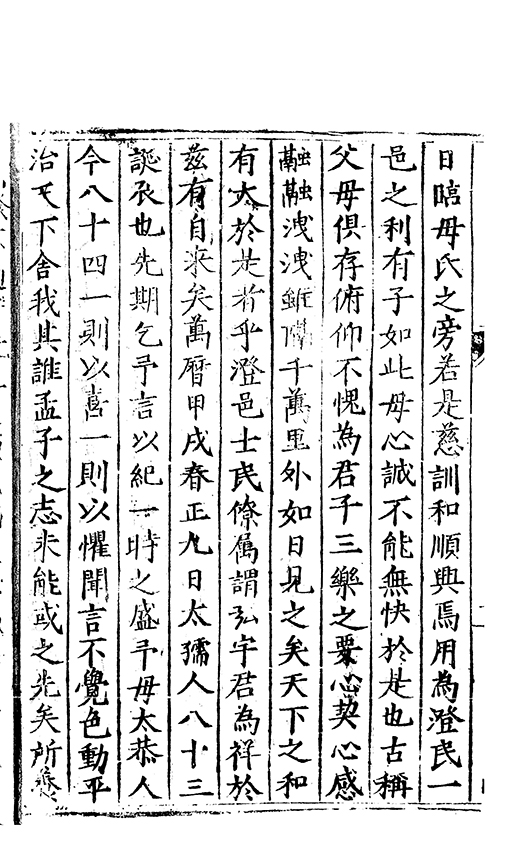 日臨母氏之旁若是慈訓和順興焉用為澄民一
邑之利有子如此母心誠不能無快於是也古稱
父母俱存俯仰不愧為君子三樂之要心契心感
融融洩洩雖隔千萬里外如日見之矣天下之和
有大於是者乎澄邑士民僚屬謂弘宇君為祥於
茲有自来矣萬曆甲戌春正九日太孺人八十三
誕辰也先期乞予言以紀一時之盛予母太恭人
今八十四一則以喜一則以懼聞言不覺色動平
治天下舍我其誰孟子之志未能或之先矣所養